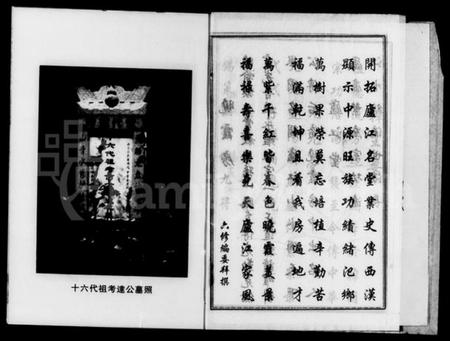 開拓廬江名堂業史傳西漢
顯示中源旺族功績緒汜鄉
萬樹果榮莫忘培植辛勤苦
福滿乾坤且看我房遍地才
萬紫千紅皆春色曉霞美景
福祿壽喜樂堯天廬江家風
六修編委拜撰
十六代祖考達公墓照